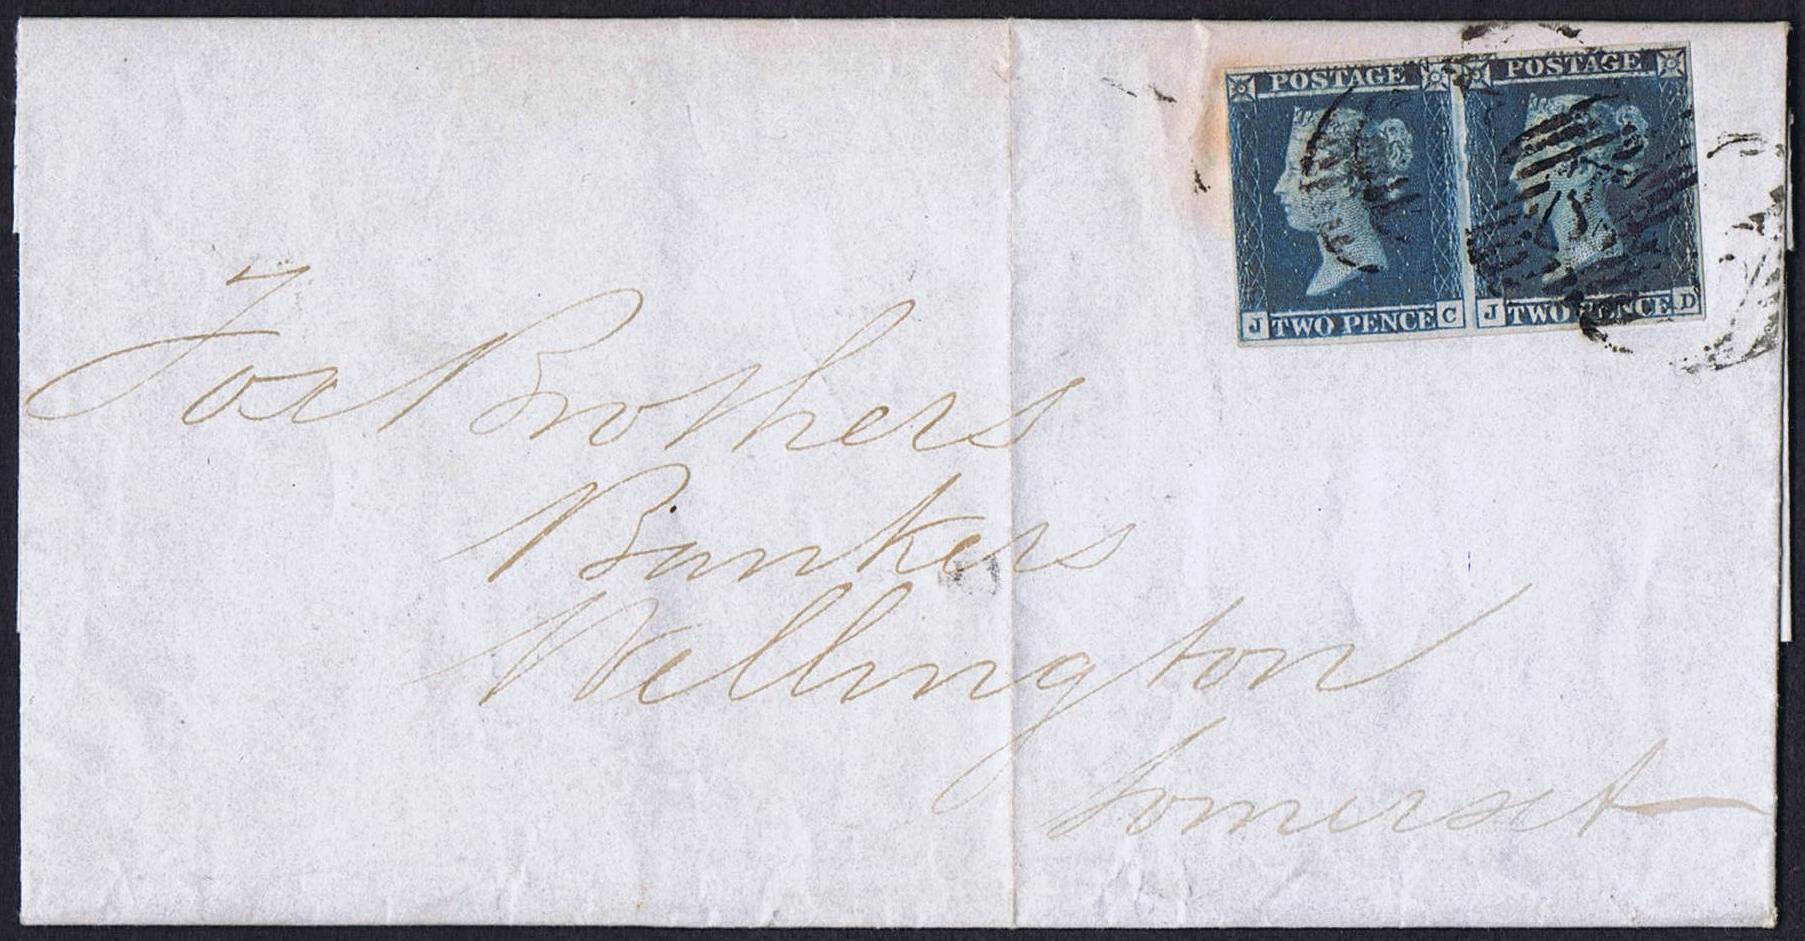 POSTAGE POSTAGE
J TWO PENCE C J TWO PENCE D
Fox Brothers
Bankers
Wellington
Somerset